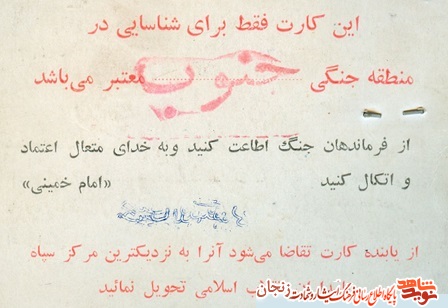 این کارت فقط برای شناسایی در
منطقه جنگی جنوب معتبر می‌باشد
از فرماندهان جنگ اطاعت کنید وبه خدای متعال اعتماد
و اتکال کنید «امام خمینی»
از یابنده کارت تقاضا می‌شود آنرا به نزدیکترین مرکز سپاه
ب اسلامی تحویل نمائید
نوید شاهد
پایگاه اطلاع رسانی فرهنگ ایثار و شهادت زنجان